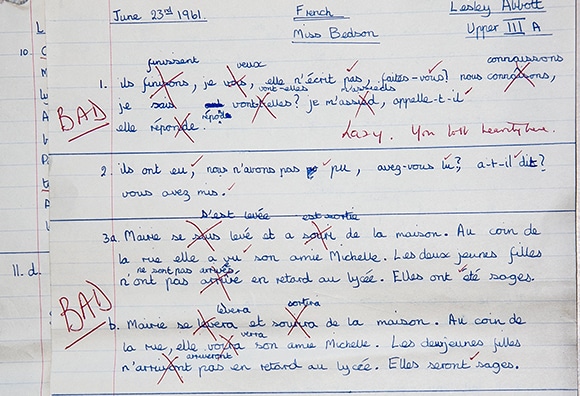 June 23rd 1961. French Lesley Abbott
Miss Bedson Upper III A
finissent veux connaissons
1. ils finirons, je vois, elle n'écrit pas, faites-vous? nous connaisons,
vont-elles m'assieds
je sais vont elles? je m'assied, appelle-t-il
BAD
elle réponde. répond
Lazy. You will
2. ils ont eu, nous n'avons pas pu, avez-vous lu? a-t-il dit?
vous avez mis.
s'est levée est sortie
3a. Marie se sous levé et a sorti de la maison. Au coin de
la rue elle a vu son amie Michelle. Les deux jeunes filles
ne sont pas arrivés
n'ont pas arrivé en retard au lycée. Elles ont été sages.
BAD
lèvera sortira
b. Marie se lèvera et sourira de la maison. Au coin de
verra
la rue, elle voira son amie Michelle. Les deux jeunes filles
arriveront
n'arriveront pas en retard au lycée. Elles seront sages.
10.
11. d